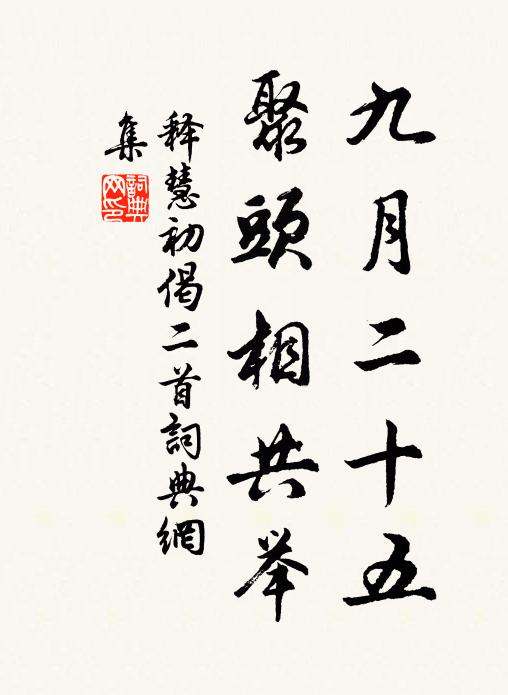 九月二十五
聚頭相共举
释慧初偈二首詞典網
集
詞典
网印